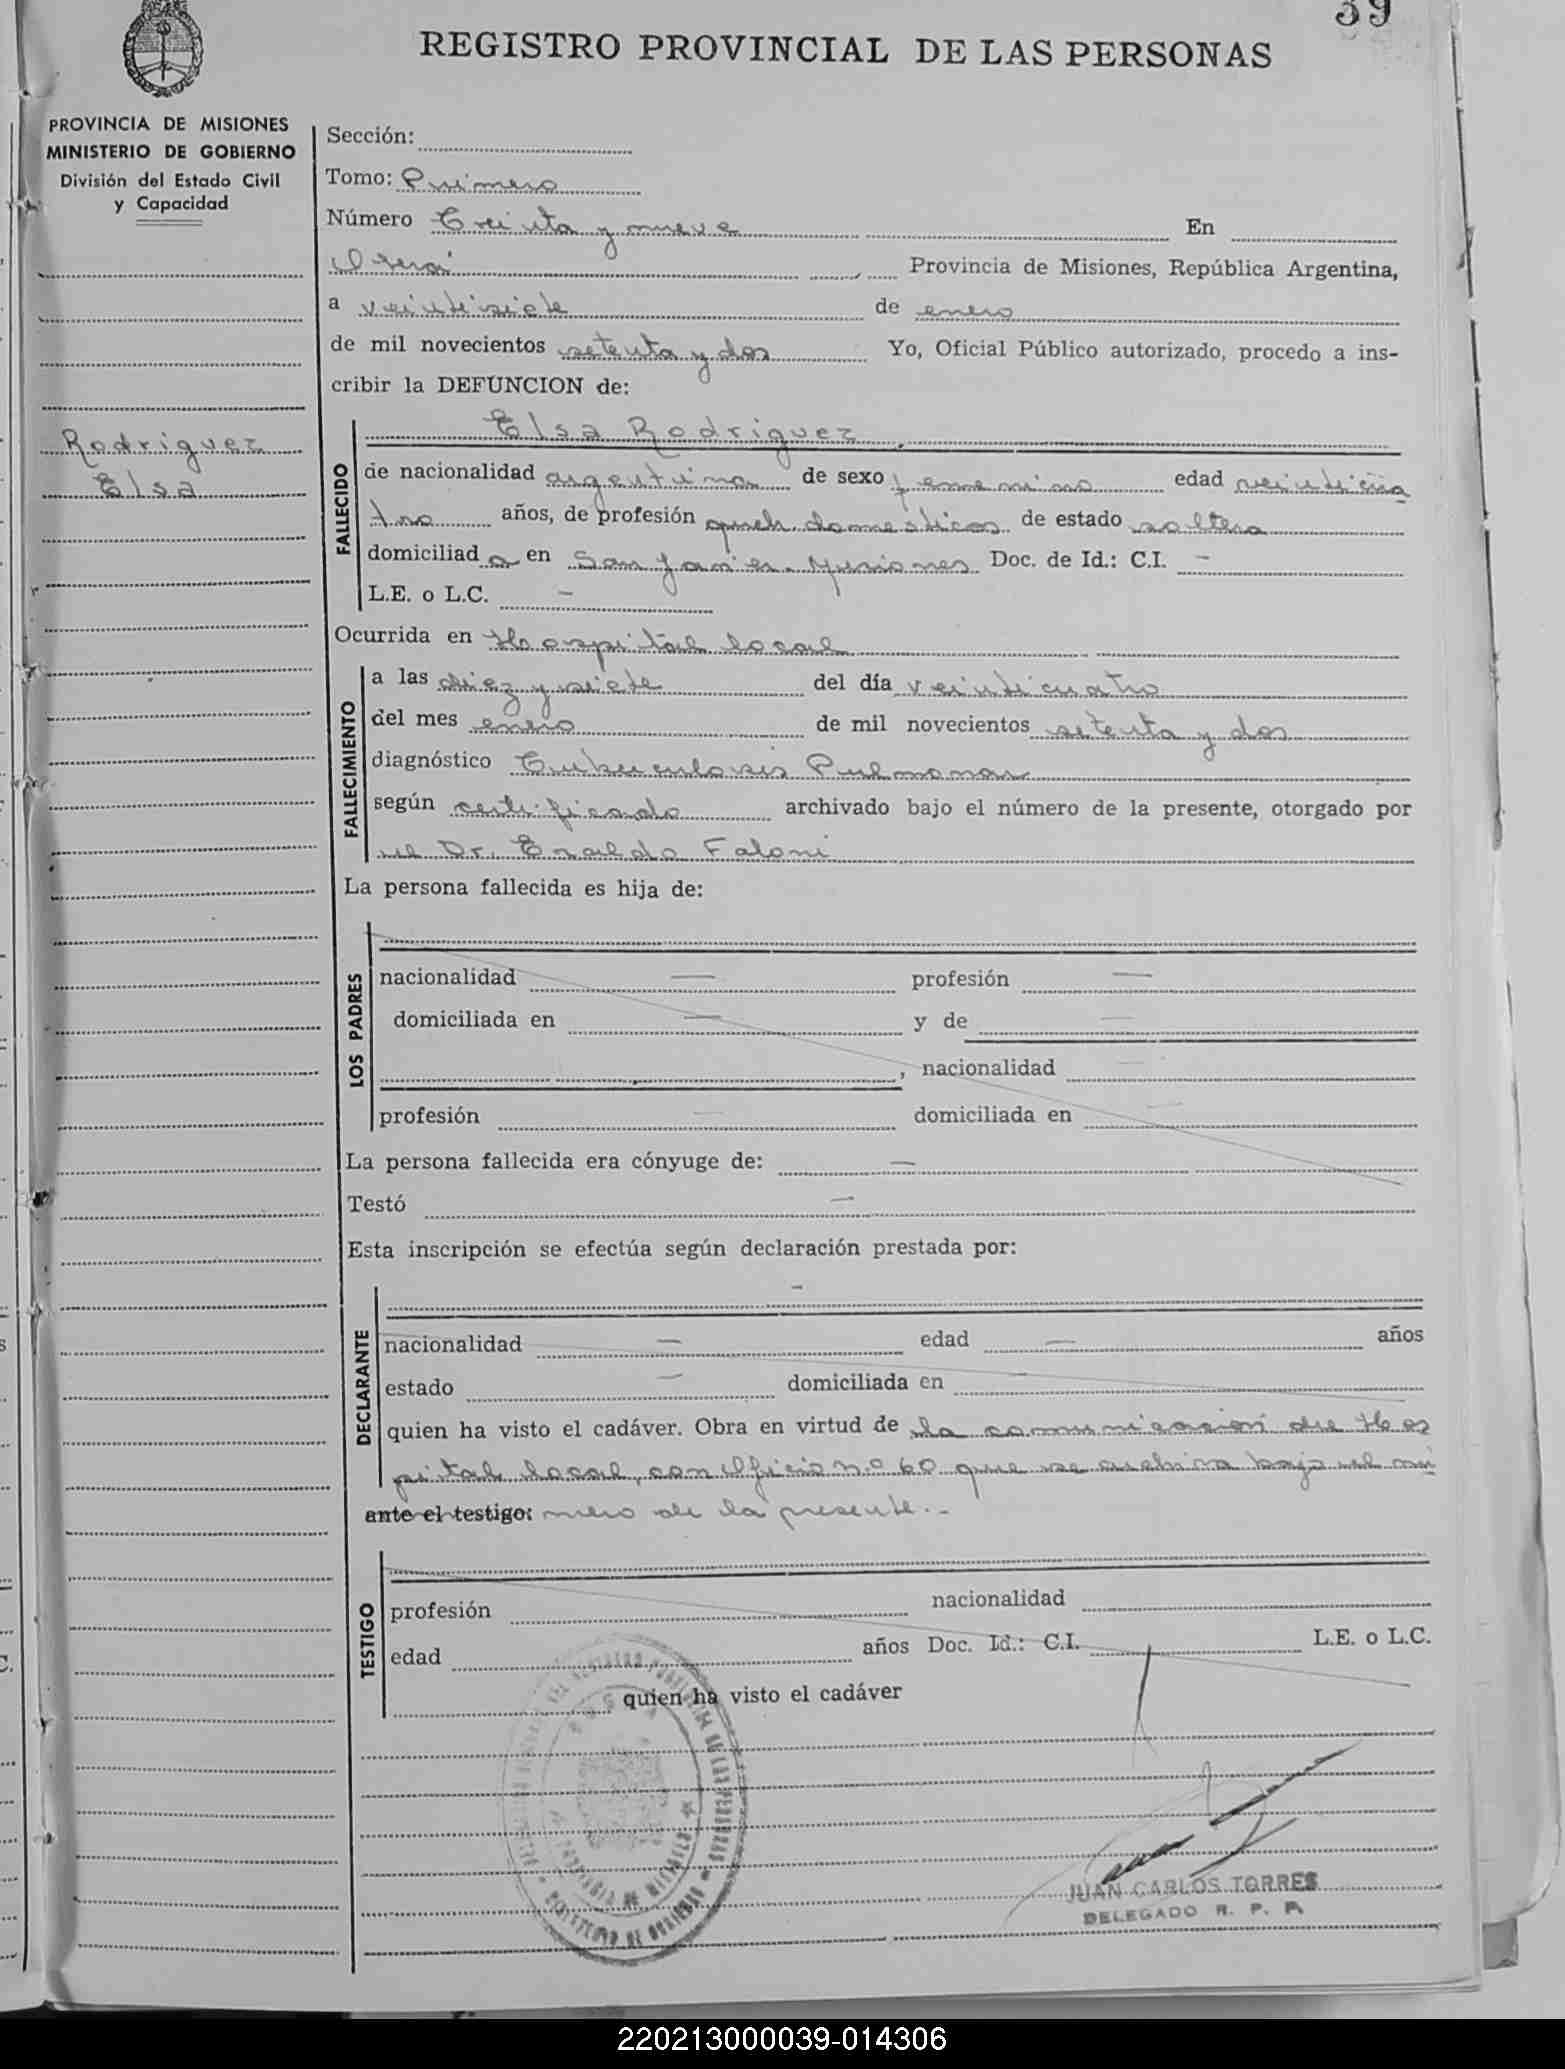 39
REGISTRO PROVINCIAL DE LAS PERSONAS
PROVINCIA DE MISIONES
MINISTERIO DE GOBIERNO
División del Estado Civil
y Capacidad
Rodriguez
Elsa
Sección:
Tomo: Primero
Número Treinta y nueve En
Oberá Provincia de Misiones, República Argentina,
a veintisiete de enero
de mil novecientos setenta y dos Yo, Oficial Público autorizado, procedo a ins-
cribir la DEFUNCION de:
FALLECIDO
Elsa Rodriguez
de nacionalidad argentina de sexo femenino edad veinticua
tro años, de profesión queh. domesticos de estado soltera
domiciliad a en San Javier - Misiones Doc. de Id.: C.I. -
L.E. o L.C. -
Ocurrida en Hospital local
FALLECIMIENTO
a las diez y siete del día veinticuatro
del mes enero de mil novecientos setenta y dos
diagnóstico Tuberculosis Pulmonar
según certificado archivado bajo el número de la presente, otorgado por
el Dr. Eraldo Faloni
La persona fallecida es hija de:
LOS PADRES
nacionalidad — profesión —
domiciliada en — y de —
, nacionalidad —
profesión — domiciliada en —
La persona fallecida era cónyuge de: —
Testó —
Esta inscripción se efectúa según declaración prestada por:
DECLARANTE
-
nacionalidad — edad — años
estado — domiciliada en —
quien ha visto el cadáver. Obra en virtud de la comunicación del Hos
pital local, con Oficio n.o 60 que se archiva bajo el nú
ante el testigo: mero de la presente.-
TESTIGO
profesión nacionalidad
edad años Doc. Id.: C.I. L.E. o L.C.
quien ha visto el cadáver
JUAN CARLOS TORRES
DELEGADO R. P. P.
220213000039-014306